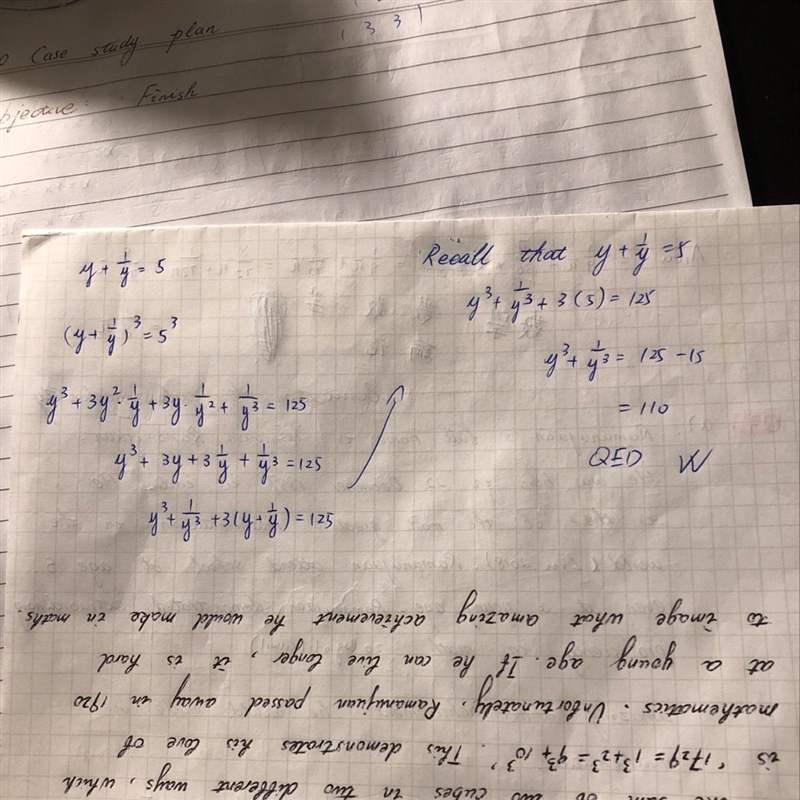 Case study plan
( 3 3 )
bjective: . Finish
y + 1/y = 5
(y + 1/y)³ = 5³
y³ + 3y² · 1/y + 3y · 1/y² + 1/y³ = 125
y³ + 3y + 3 1/y + 1/y³ = 125
y³ + 1/y³ + 3(y + 1/y) = 125
Recall that y + 1/y = 5
y³ + 1/y³ + 3(5) = 125
y³ + 1/y³ = 125 - 15
= 110
QED
sum of two cubes in two different ways, which
is '1729 = 1³+2³ = 9³+10³'. This demonstrates his love of
mathematics. Unfortunately, Ramanujan passed away in 1920
at a young age. If he can live longer, it is hard
to image what amazing achievement he would make in maths.